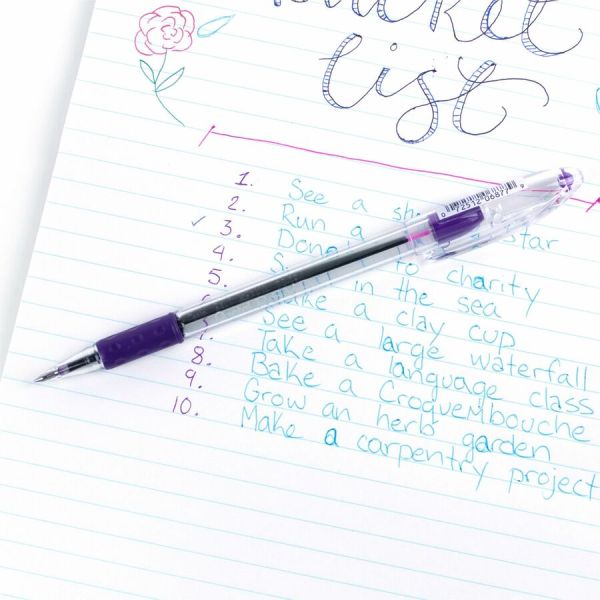 ucket
list
1. See a sh star
2. Run a
✓ 3. Don to charity
4. in the sea
5. ake a clay cup
See a large waterfall
7. Take a language class
8. Bake a Croquembouche
9. Grow an herb garden
10. Make a carpentry project
0 72512 06877 9